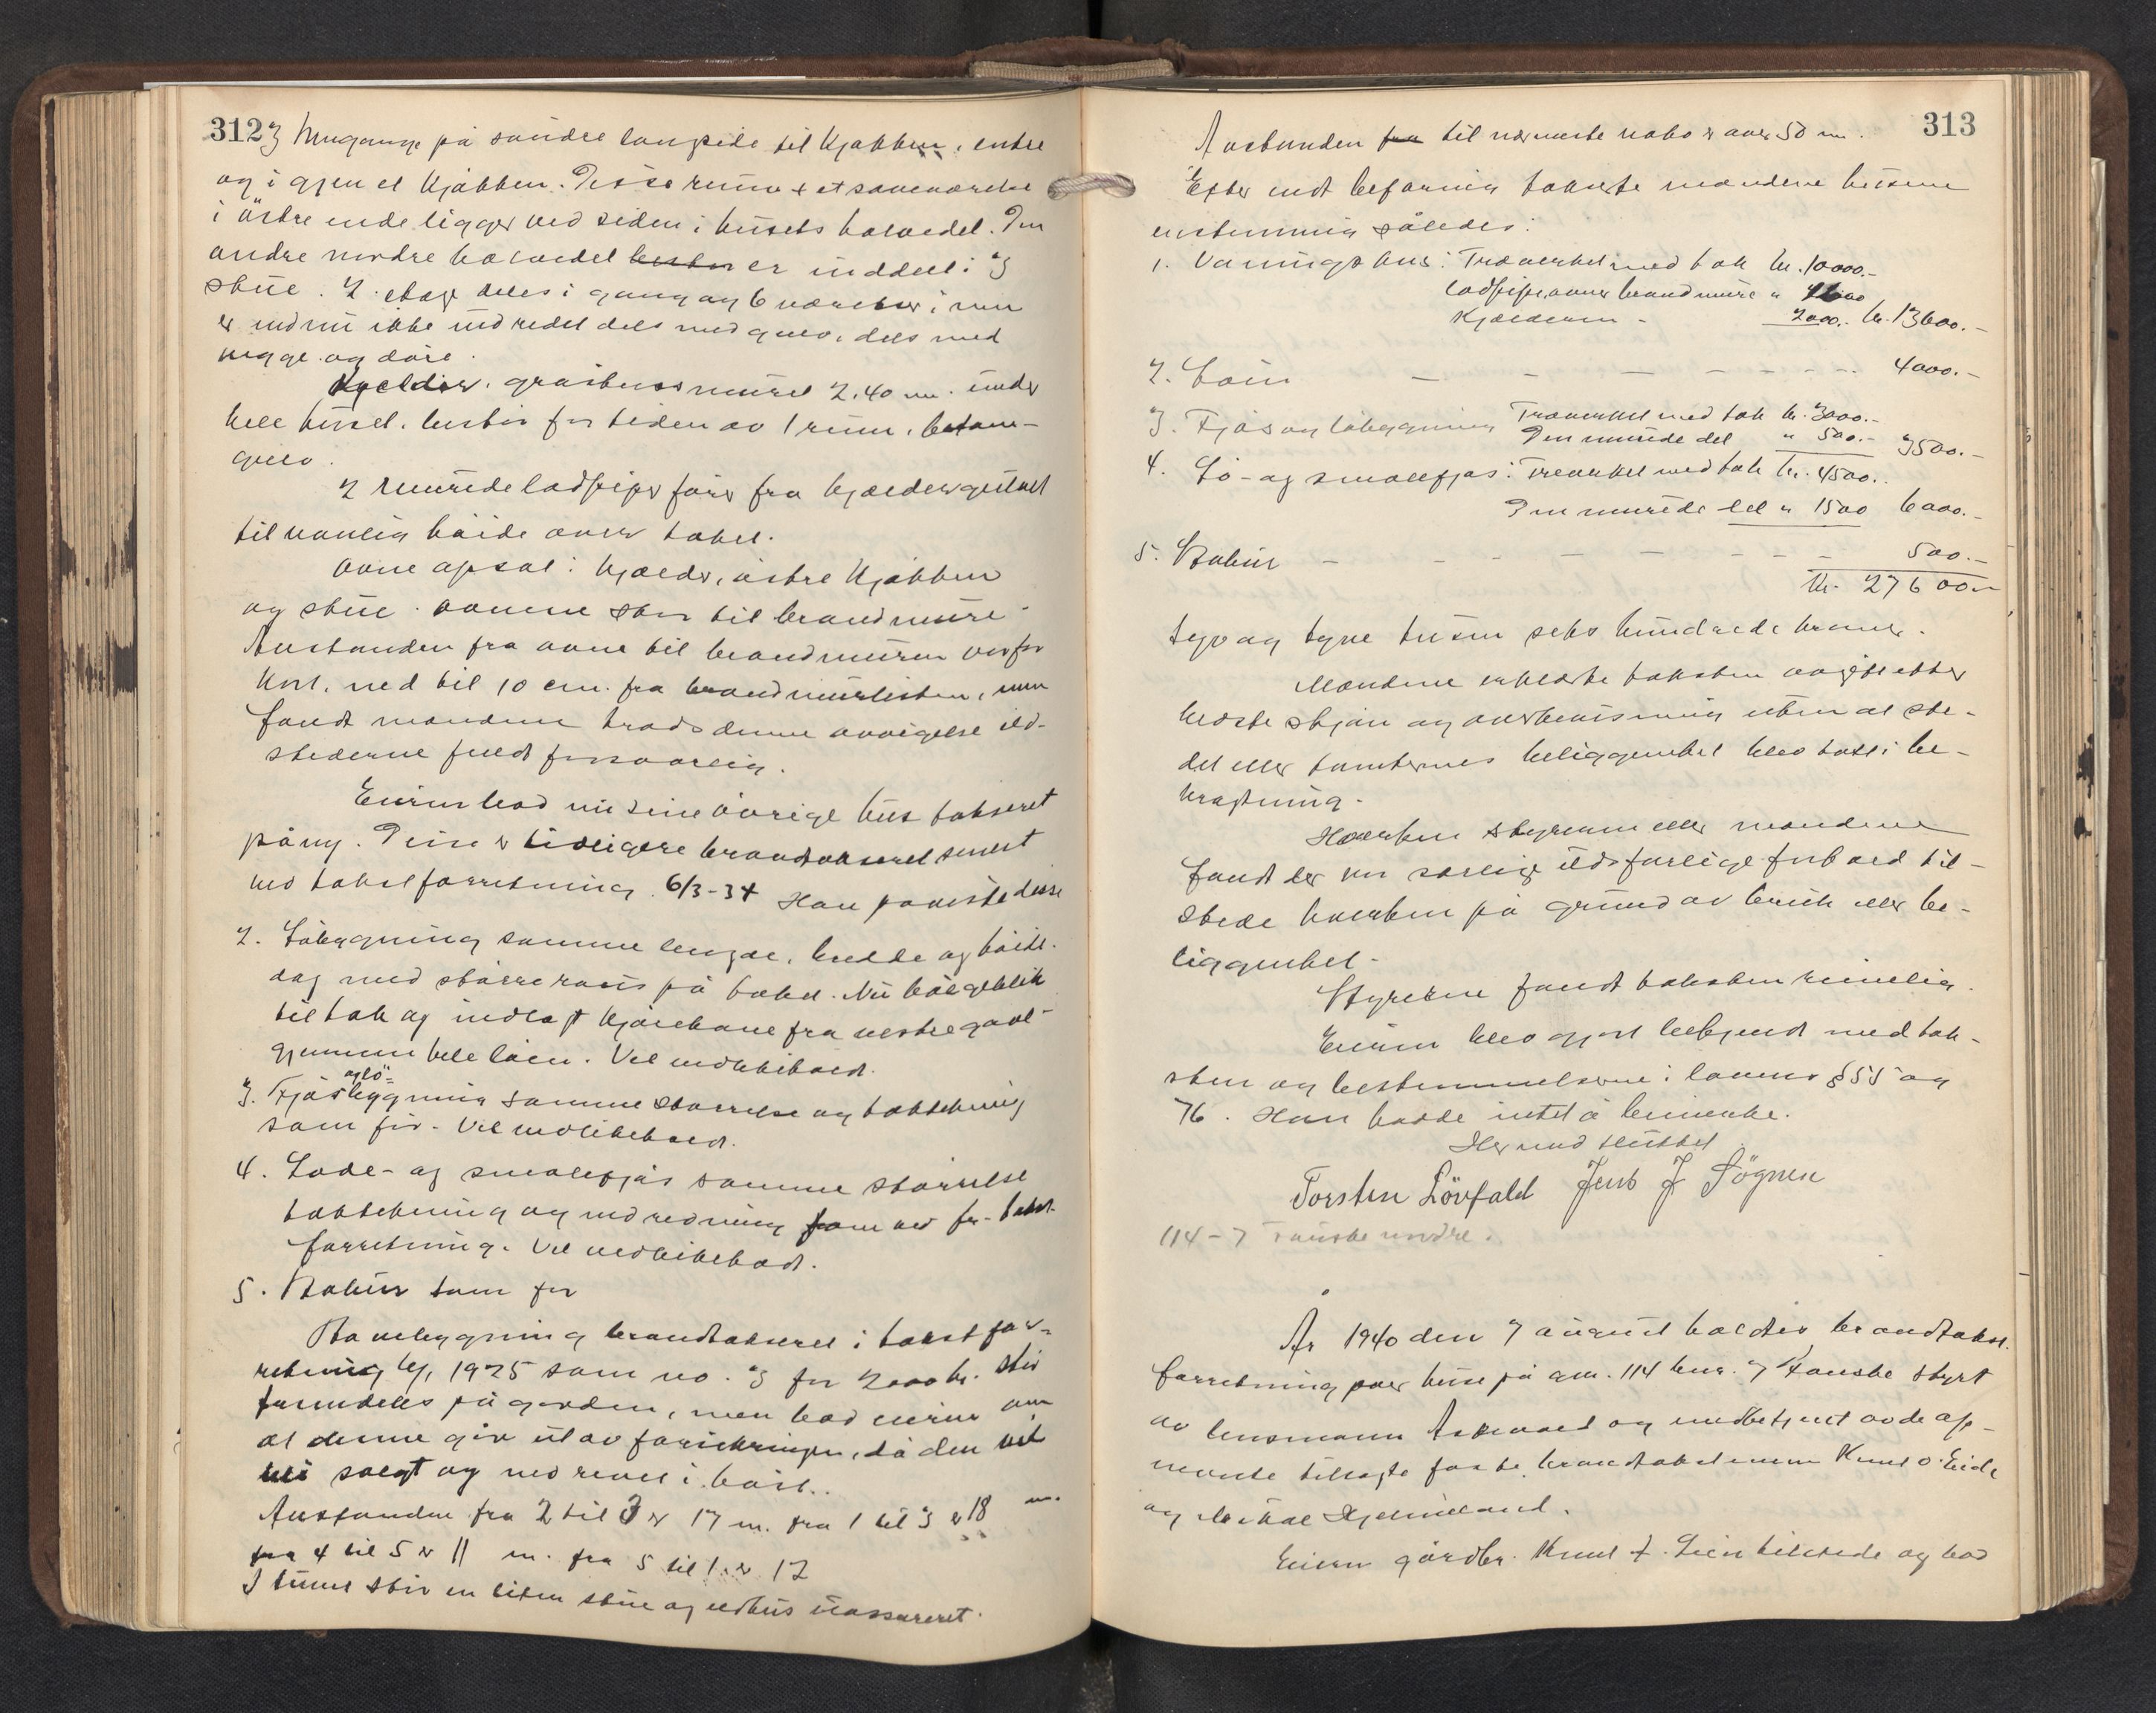 312
3 Inngange på søndre langside til kjøkken, entre
og igjen et kjøkken. Disse rum + et soveværelse
i østre ende ligger ved siden i husets halvdel. Den
andre nordre halvdel er inddelt i 3
stue. 2. etage deles i gang og 6 værelser, men
er endnu ikke indredet dels med gulv, dels med
vegge og døre.
Kjelder, gråstensmuret 2,40 m. under
hele huset, består for tiden av 1 rum, betong-
gulv.
2 murede lodpiper fører fra kjældergulvet
til vanlig høide over taket.
Ovne opsat i kjælder, østre kjøkken
og stue. ovnene står til brandmure.
Avstanden fra ovne til brandmuren er for
kort, ned til 10 cm. fra brandmurlisten, men
fandt mændene trods denne avvigelse ild-
stederne fuldt forsvarlig.
Eieren bad nu sine øvrige hus taksert
påny. Disse er tidligere brandtakseret senest
ved takstforretning 6/3-34 Han påviste disse
2. Løbygning samme lengde, bredde og høide.
dog med større røis på taket. Nu bølgeblik
til tak og indlagt kjørebane fra vestre gavl-
gjennem hele løen. Vel vedlikeholdt.
og lö-
3. Fjøsbygning samme størrelse og taktekning
som før. Vel vedlikeholdt.
4. Lade- og smalefjøs samme størrelse
taktekning og indredning som ved før. takst-
forretning. Vel vedlikeholdt.
5. Stabur som før
Stovebygning brandtakseret i takstfor-
retning 1925 som no. 3 for 2000 kr. står
fremdeles på garden, men bad eieren om
at denne går ut av forsikringen, då den vil
bli solgt og nedrevet i høst.
Avstanden fra 2 til 3 er 17 m. fra 1 til 3 er 18 m.
fra 4 til 5 er 11 m. fra 5 til 1 er 12
I tunet står en liten stue og eldhus uassureret.
313
Avstanden fra til nærmeste nabo er over 50 m.
Efter endt befaring takserte mændene husene
enstemmig således:
1. Vaningshus: Træverket med tak kr. 10000.-
lodpiper, ovner brandmure " 1600
Kjælderen - 2000.- kr. 13600.-
2. Løin - - - - - - - 4000.-
3. Fjøs og løbygning Træverket med tak kr. 3000.-
Den murede del " 500.- 3500.-
4. Lø- og smalefjøs: Treverket med tak kr. 4500.
Den murede del " 1500 6000.-
5. Stabur - - - - - - - 500.-
Kr. 27600.-
syv og tyve tusen seks hundrede kroner.
Mændene erklærte taksten avgit efter
bedste skjøn og overbevisning uten at ste-
det eller tomternes beliggenhet blev tatt i be-
tragtning.
Hverken styreren eller mændene
fandt der var særlige ildsfarlige forhold til-
stede hverken på grund av bruk eller be-
liggenhet.
Styreren fandt taksten rimelig.
Eieren blev gjort bekjendt med tak-
sten og bestemmelserne i lovens § 55 og
76. Han hadde intet å bemerke.
Hermed sluttet
Torsten Lövfald Jens J Sögnen
114-7 Tauske nordre.
År 1940 den 7 august holdtes brandtakst.
forretning over huse på gnr. 114 bnr. 7 Tauske styrt
av lensmann Askevold og medbetjent av de op-
nevnte tilsagte faste brandtakstmenn Knut O. Eide
og Mikal Hjelmeland.
Eieren gårdbr. Knut T. Lien tilstede og bad